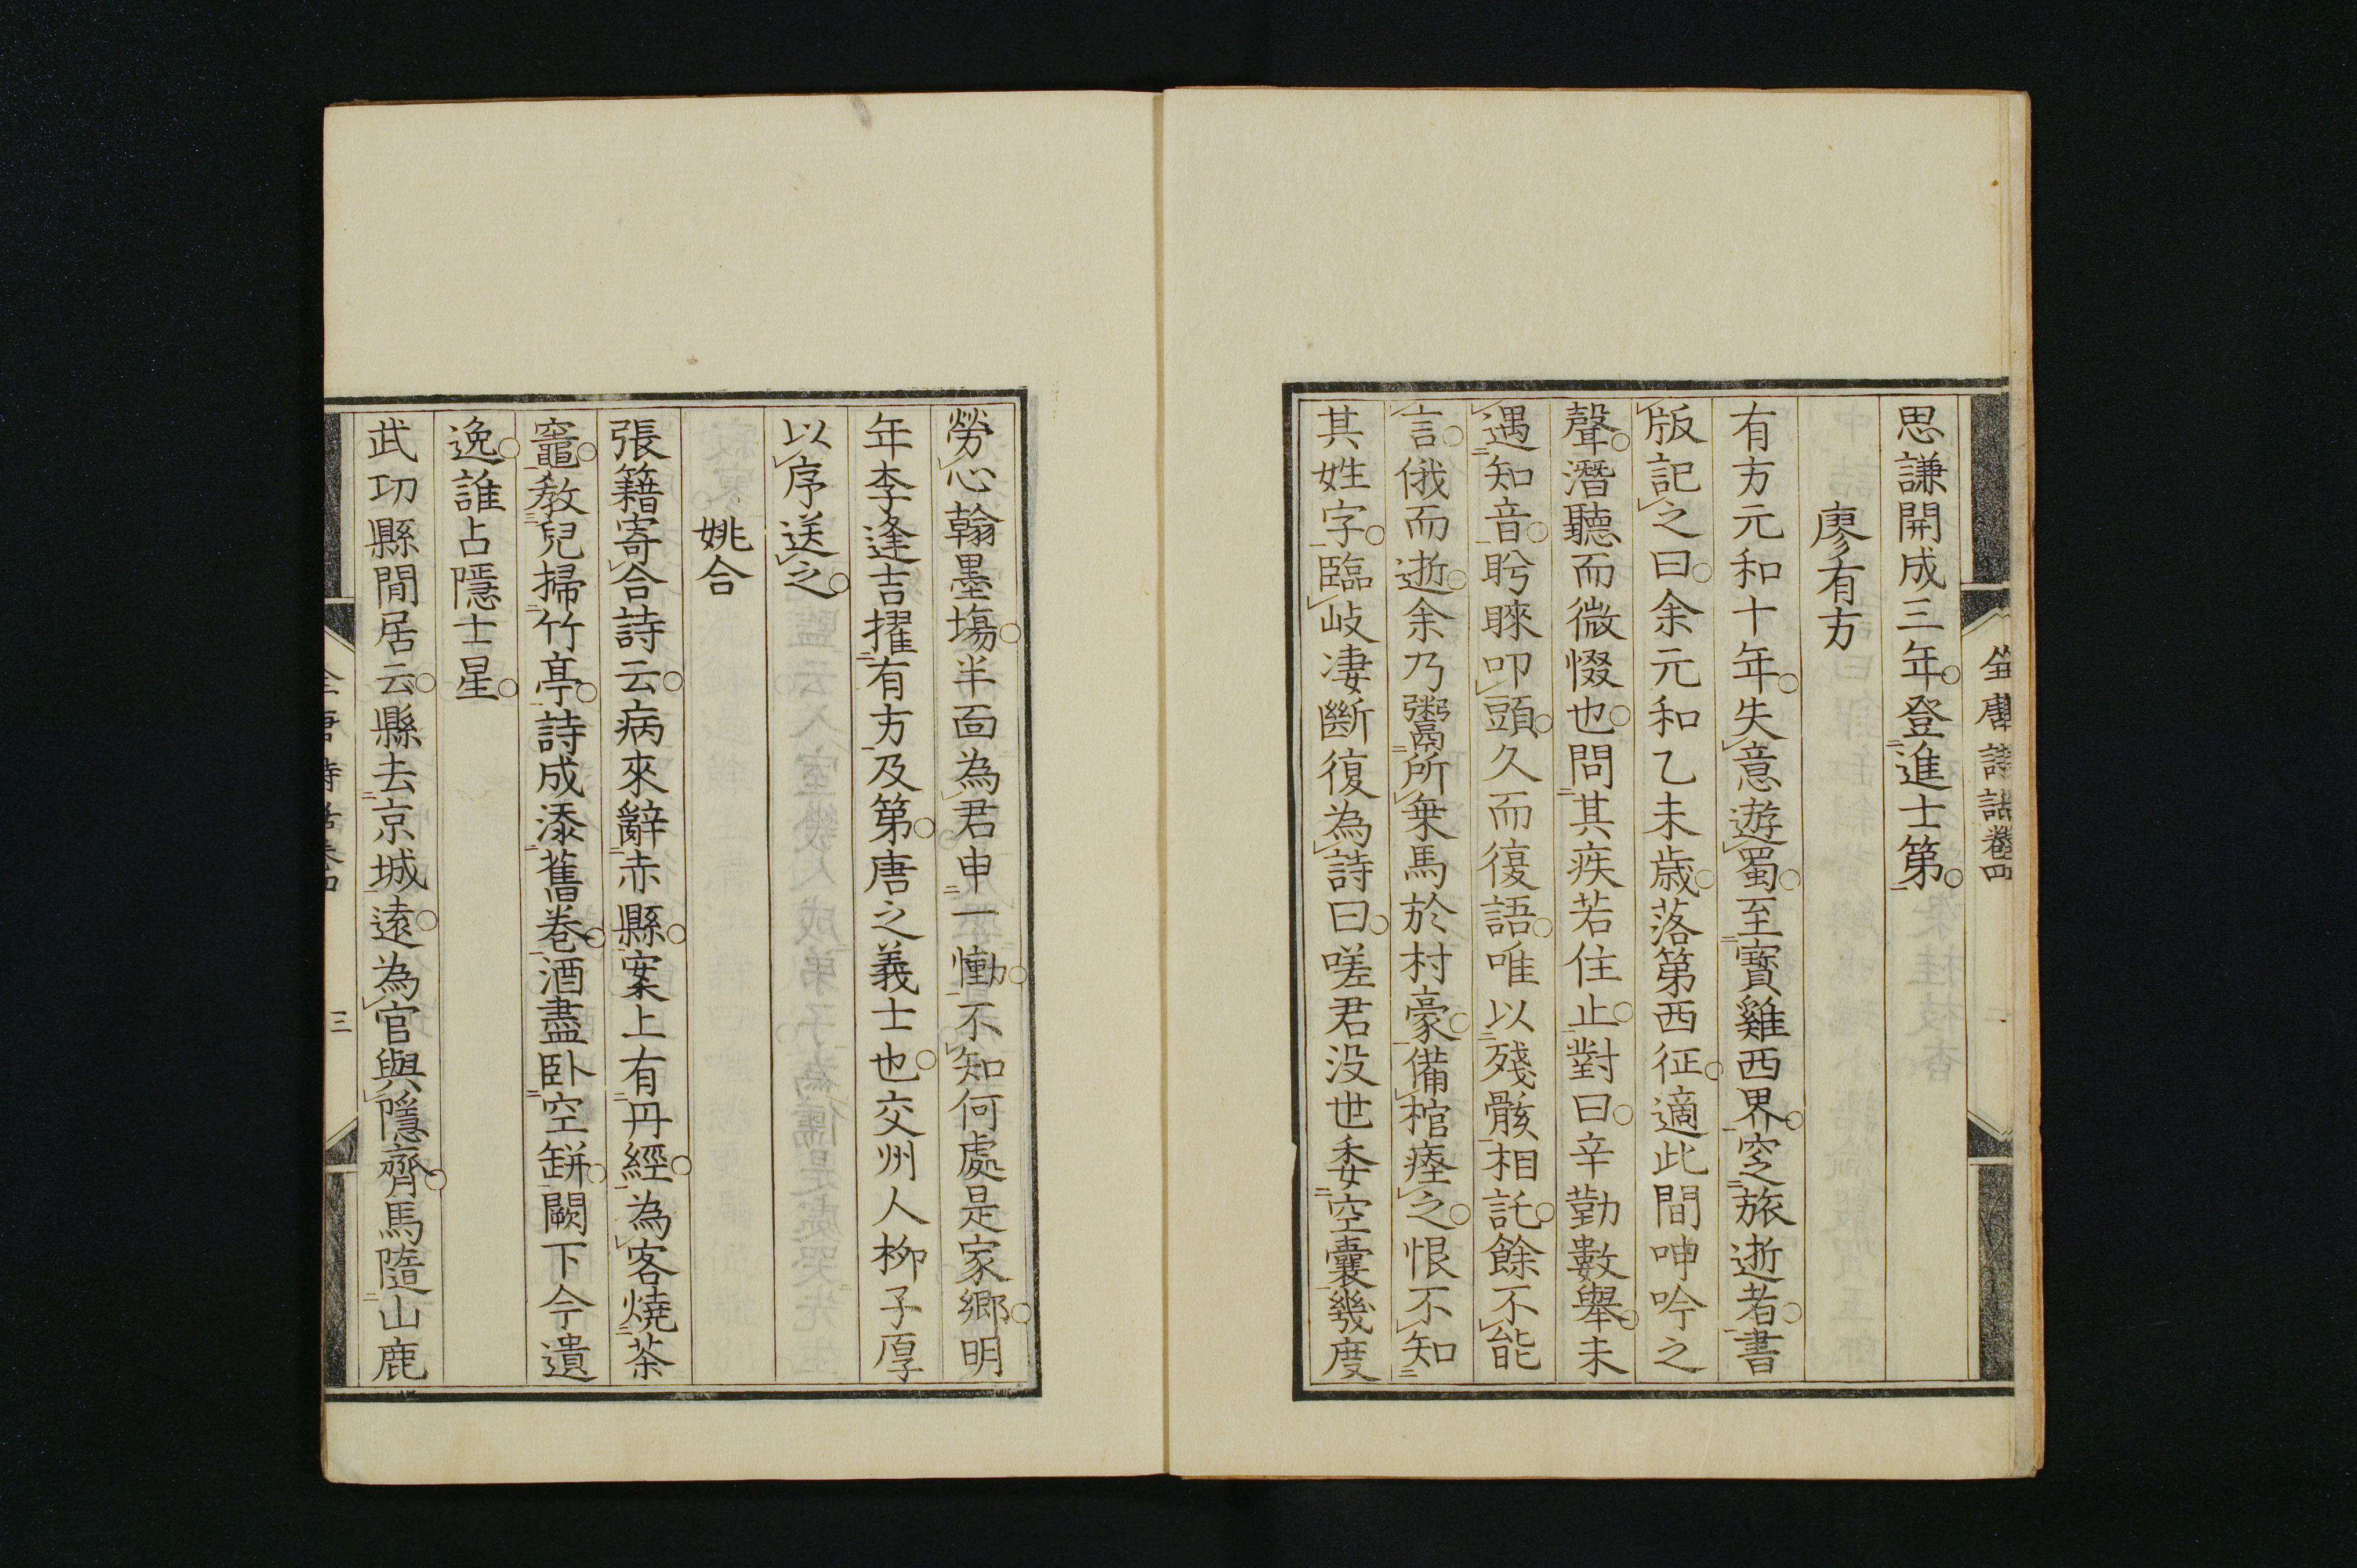 全唐詩話卷四
思謙開成三年登進士第
廖有方
有方元和十年失意遊蜀至寶雞西界窆旅逝者書
版記之曰余元和乙未歲落第西征適此間呻吟之
聲潛聽而微惙也問其疾若住止對曰辛勤數舉未
遇知音眄睞叩頭久而復語唯以殘骸相託餘不能
言俄而逝余乃鬻所乗馬於村豪備棺瘞之恨不知
其姓字臨岐凄斷復為詩曰嗟君没世委空囊幾度
勞心翰墨塲半面為君申一慟不知何處是家鄉明
年李逢吉擢有方及第唐之義士也交州人柳子厚
以序送之
姚合
張籍寄合詩云病來辭赤縣案上有丹經為客燒茶
竈教兒掃竹亭詩成添舊卷酒盡卧空缾闕下今遺
逸誰占隱士星
武功縣閒居云縣去京城遠為官與隱齊馬隨山鹿
三